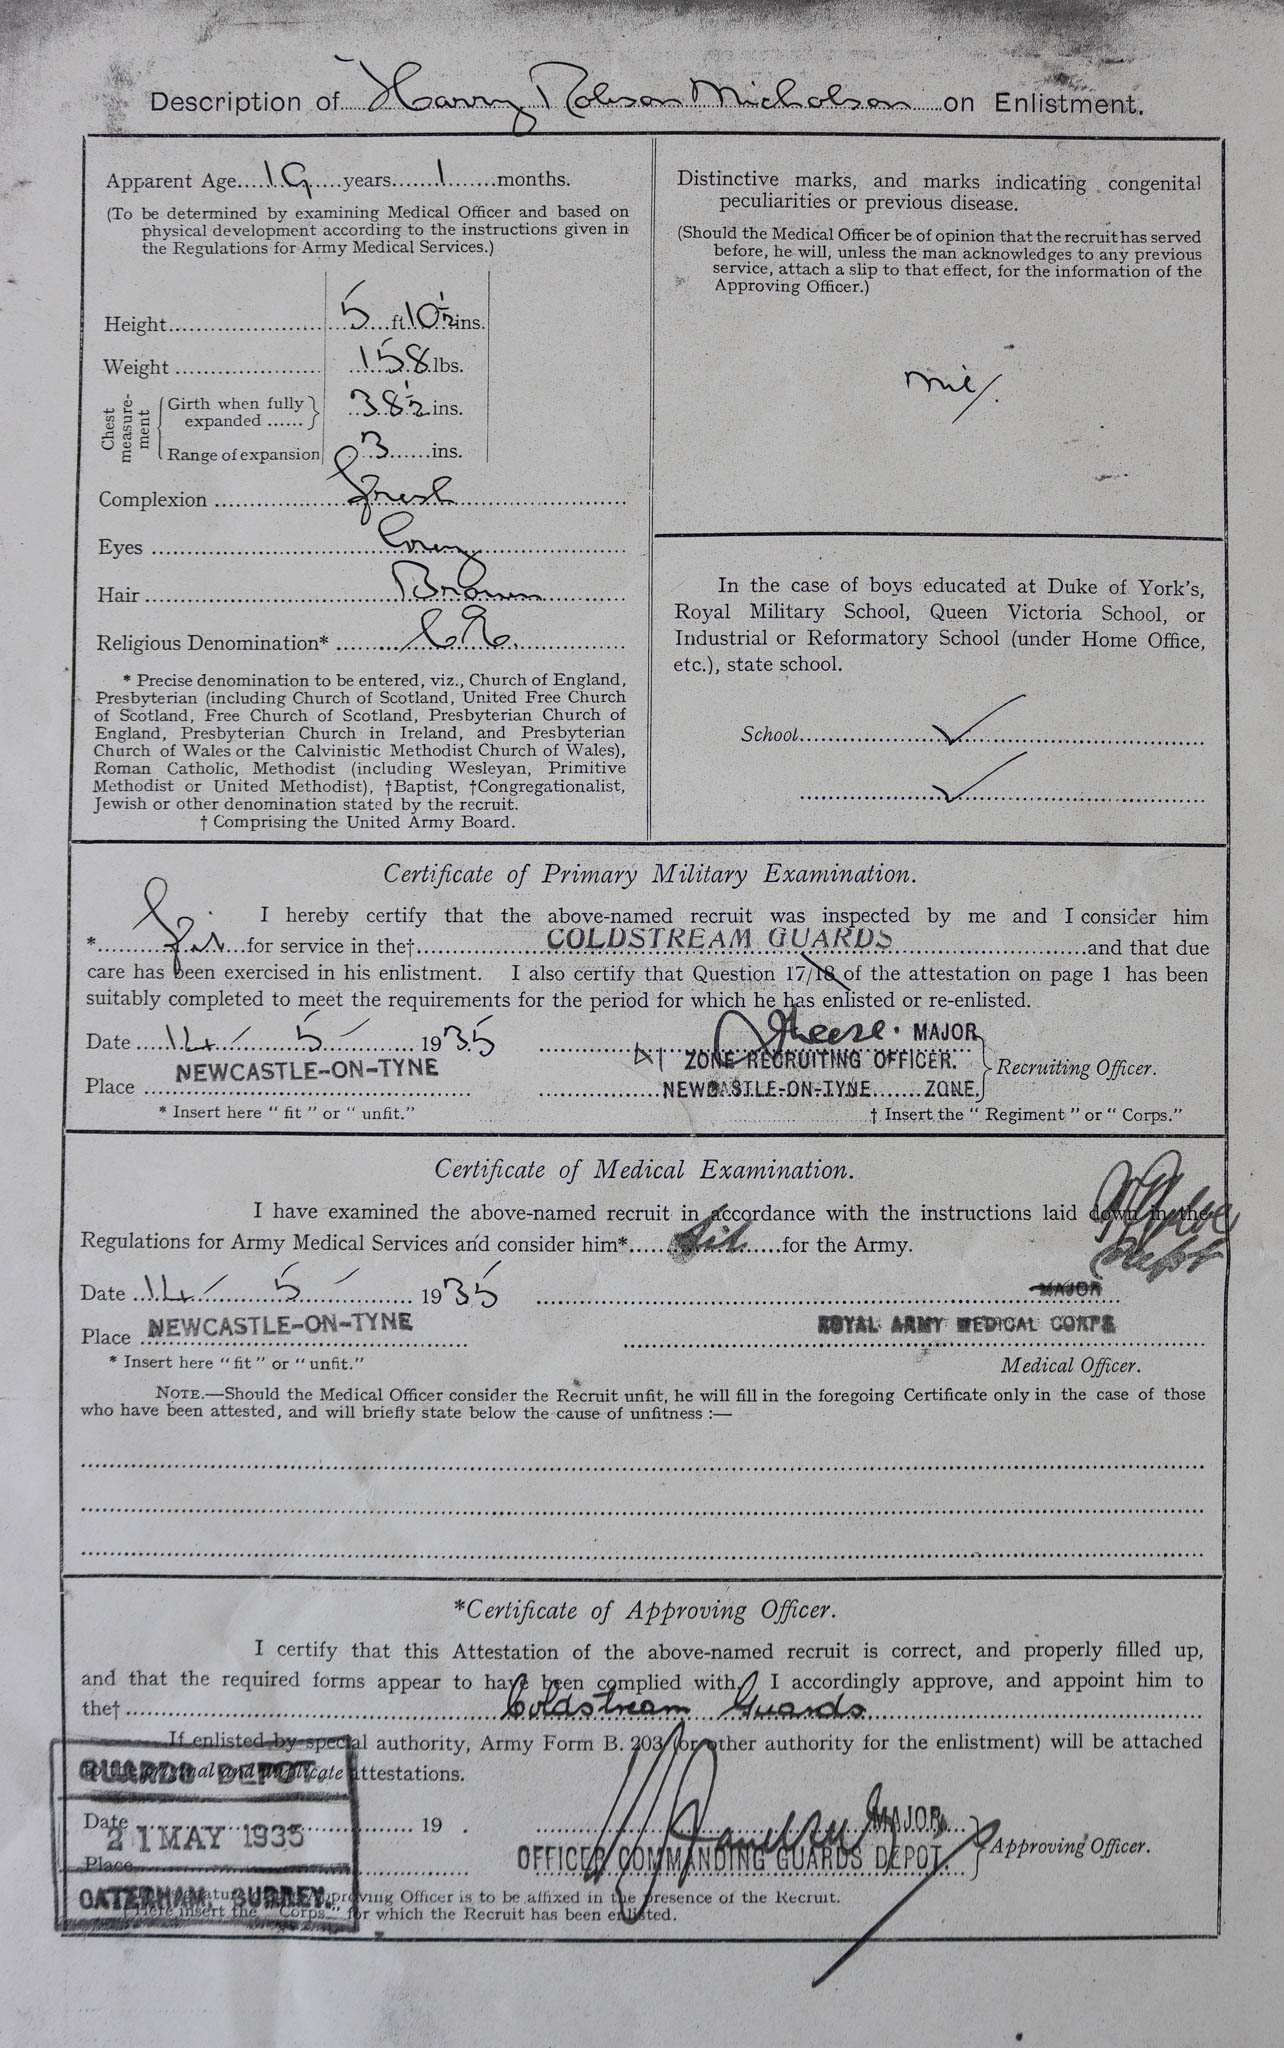 Description of Harry Robson Nicholson on Enlistment.
Apparent Age....19....years......1......months.
(To be determined by examining Medical Officer and based on
physical development according to the instructions given in
the Regulations for Army Medical Services.)
Height 5 ft 10½ ins.
Weight 158 lbs.
Chest measure-ment
Girth when fully
expanded 38½ ins.
Range of expansion 3 ins.
Complexion Fresh
Eyes Grey
Hair Brown
Religious Denomination* C of E.
* Precise denomination to be entered, viz., Church of England,
Presbyterian (including Church of Scotland, United Free Church
of Scotland, Free Church of Scotland, Presbyterian Church of
England, Presbyterian Church in Ireland, and Presbyterian
Church of Wales or the Calvinistic Methodist Church of Wales),
Roman Catholic, Methodist (including Wesleyan, Primitive
Methodist or United Methodist), †Baptist, †Congregationalist,
Jewish or other denomination stated by the recruit.
† Comprising the United Army Board.
Distinctive marks, and marks indicating congenital
peculiarities or previous disease.
(Should the Medical Officer be of opinion that the recruit has served
before, he will, unless the man acknowledges to any previous
service, attach a slip to that effect, for the information of the
Approving Officer.)
Nil/.
In the case of boys educated at Duke of York's,
Royal Military School, Queen Victoria School, or
Industrial or Reformatory School (under Home Office,
etc.), state school.
School
Certificate of Primary Military Examination.
I hereby certify that the above-named recruit was inspected by me and I consider him
* fit for service in the† COLDSTREAM GUARDS and that due
care has been exercised in his enlistment. I also certify that Question 17/18 of the attestation on page 1 has been
suitably completed to meet the requirements for the period for which he has enlisted or re-enlisted.
Date 14 - 5 - 1935
MAJOR
ZONE RECRUITING OFFICER.
Place NEWCASTLE-ON-TYNE
NEWCASTLE-ON-TYNE ZONE.
Recruiting Officer.
* Insert here "fit" or "unfit."
† Insert the "Regiment" or "Corps."
Certificate of Medical Examination.
I have examined the above-named recruit in accordance with the instructions laid down in the
Regulations for Army Medical Services and consider him* fit for the Army.
Depot
Date 14 - 5 - 1935
MAJOR
Place NEWCASTLE-ON-TYNE
ROYAL ARMY MEDICAL CORPS
* Insert here "fit" or "unfit."
Medical Officer.
NOTE.—Should the Medical Officer consider the Recruit unfit, he will fill in the foregoing Certificate only in the case of those
who have been attested, and will briefly state below the cause of unfitness :—
*Certificate of Approving Officer.
I certify that this Attestation of the above-named recruit is correct, and properly filled up,
and that the required forms appear to have been complied with. I accordingly approve, and appoint him to
the† Coldstream Guards
If enlisted by special authority, Army Form B. 203 (or other authority for the enlistment) will be attached
to the original and duplicate attestations.
GUARDS DEPOT.
Date 19 .
21 MAY 1935
MAJOR,
OFFICER COMMANDING GUARDS DEPOT.
Approving Officer.
Place
CATERHAM, SURREY.
Approving Officer is to be affixed in the presence of the Recruit.
† Here insert the "Corps" for which the Recruit has been enlisted.